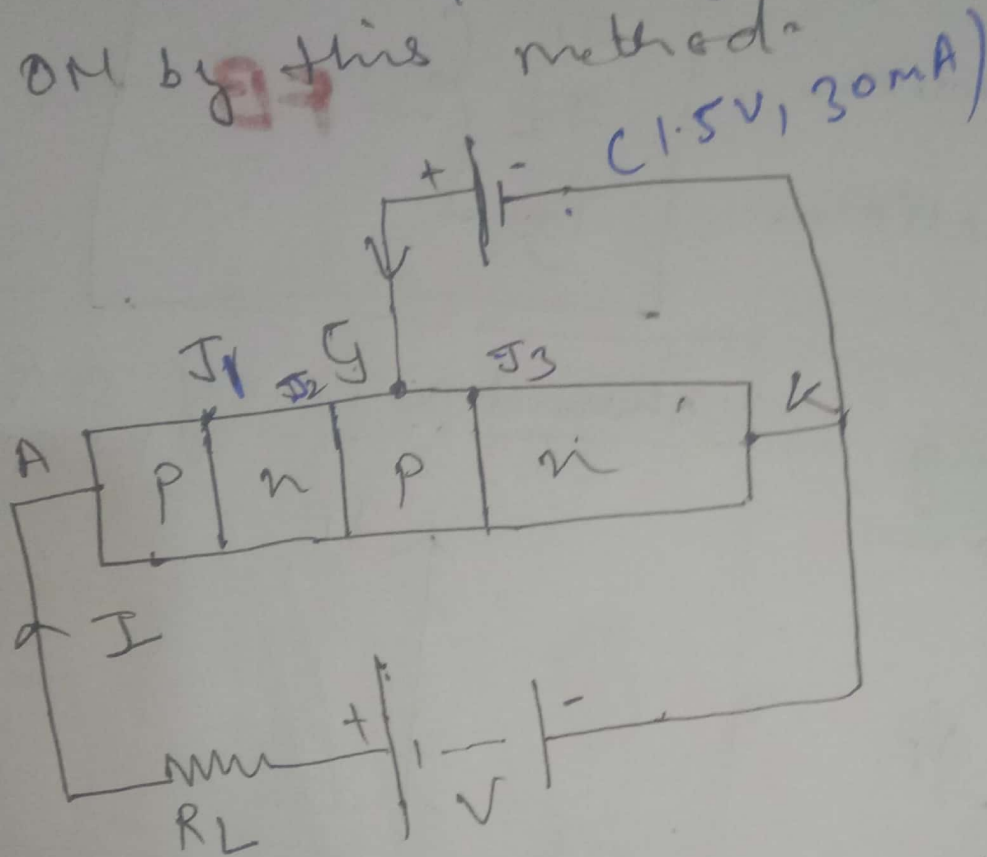 ON by this method.
(1.5V, 30mA)
+ -
J1 J2 G J3
A p n p n K
I
+ -
RL V